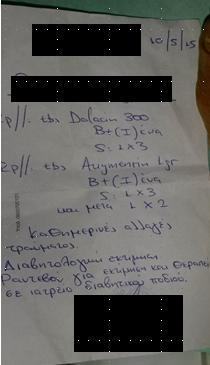 10/5/15
Rp//. tbs Dalacin 300
B+(I) ένα
S: 1x3
Rp//. tbs Augmentin 1gr
B+(I) ένα
S: 1x3
και μετα 1x2
Καθημερινές αλλαγές
τραυματος.
Διαβητολογικη εκτιμηση
Ραντεβου για εκτιμηση και θεραπεια
σε ιατρειο διαβητικου ποδιου.